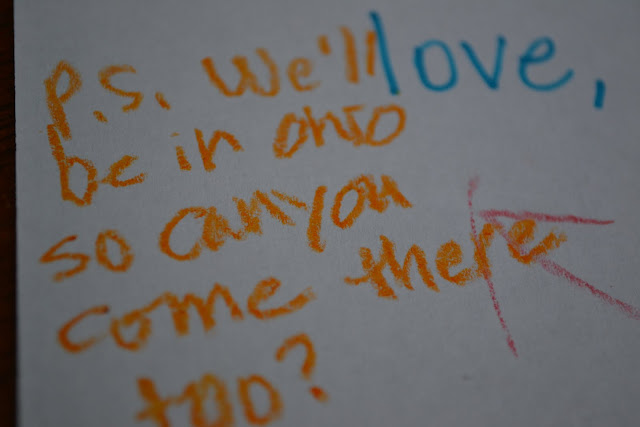 p.s. We'll love,
be in ohio
so can you
come there
too?